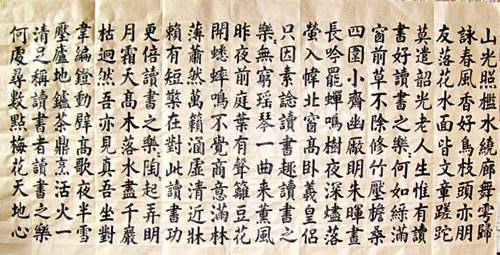 山光照檻水繞廊舞雩歸
詠春風香好鳥枝頭亦朋
友落花水面皆文章蹉跎
莫遣韶光老人生惟有讀
書好讀書之樂何如綠滿
窗前草不除修竹壓檐桑
四圍小齋幽敞明朱暉晝
長吟罷蟬鳴樹夜深燼落
螢入幃北窗高臥羲皇侶
只因素諗讀書趣讀書之
樂無窮瑤琴一曲来薰風
昨夜前庭葉有聲籬豆花
開蟋蟀鳴不覺商意滿林
薄蕭然萬籟涵虛清近牀
賴有短檠在對此讀書功
更倍讀書之樂陶起弄明
月霜天高木落水盡千巖
枯迥然吾亦見真吾坐對
韋編鐙動壁高歌夜半雪
壓廬地鑪茶鼎烹活火一
清足稱讀書者讀書之樂
何處尋數點梅花天地心